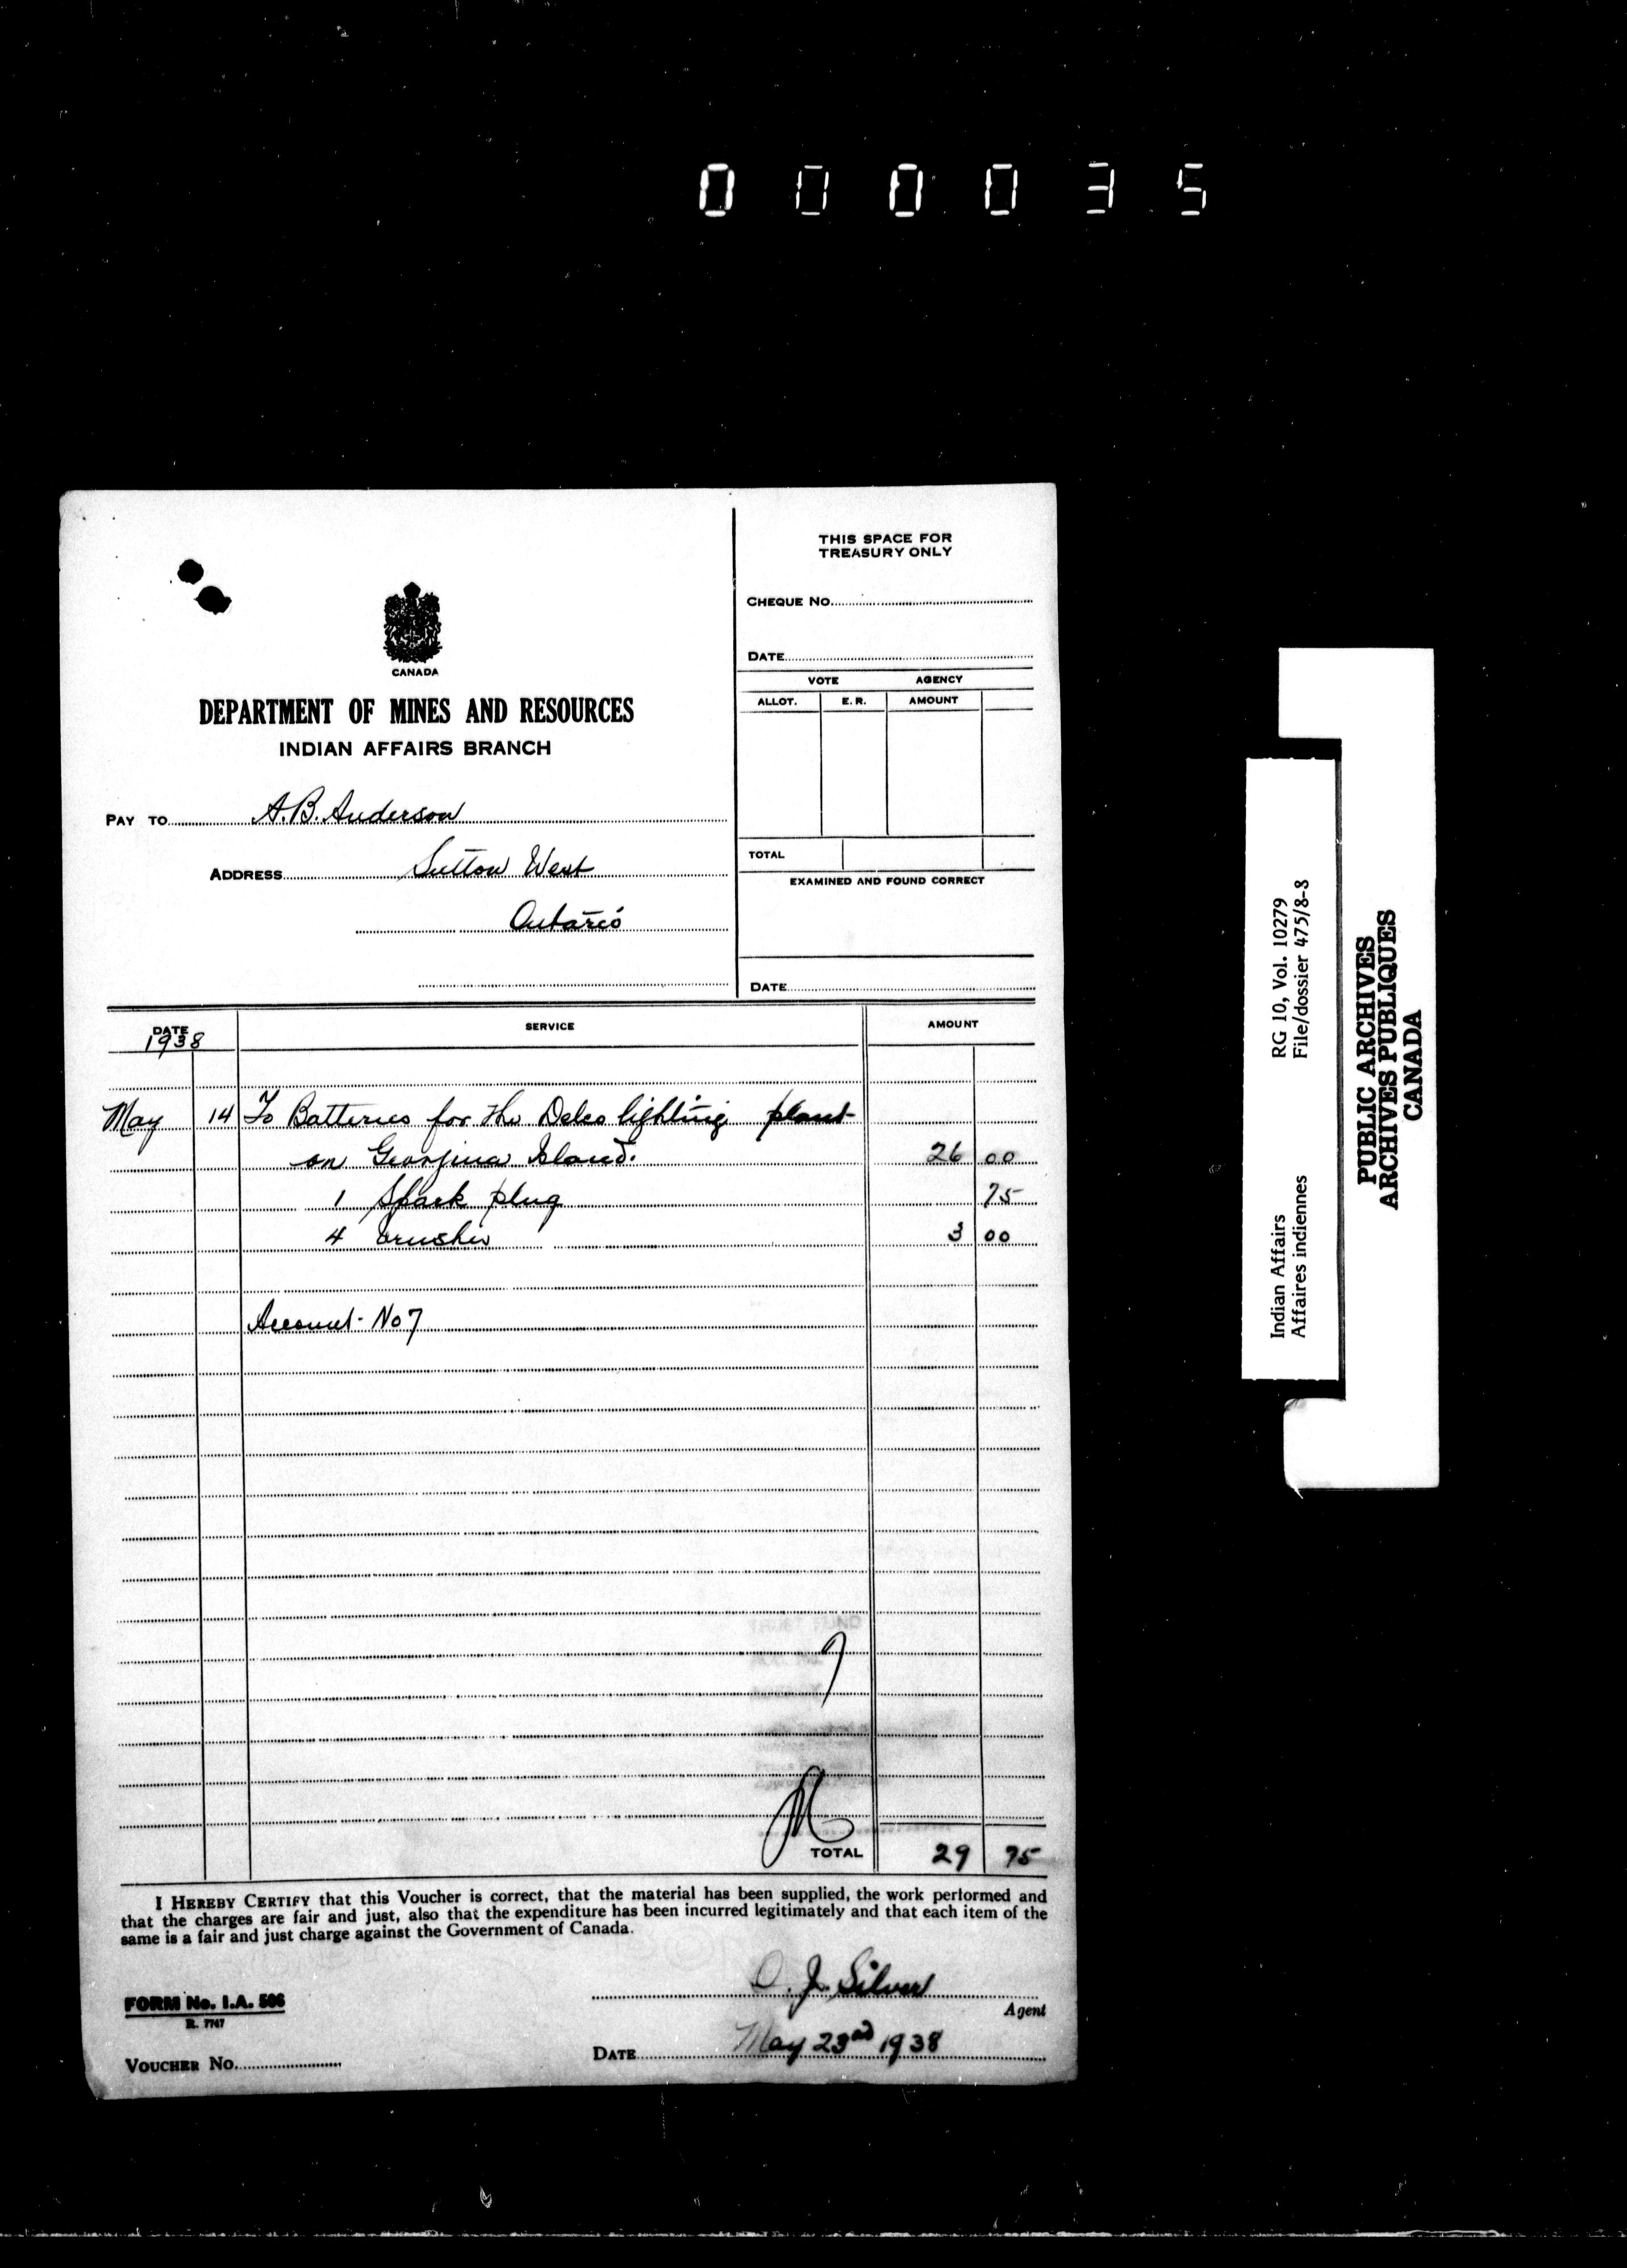 000035
THIS SPACE FOR
TREASURY ONLY
CHEQUE No.
DATE
VOTE AGENCY
ALLOT. E. R. AMOUNT
TOTAL
EXAMINED AND FOUND CORRECT
DATE
CANADA
DEPARTMENT OF MINES AND RESOURCES
INDIAN AFFAIRS BRANCH
PAY TO A. B. Anderson
ADDRESS Sutton West
Ontario
DATE SERVICE AMOUNT
1938
May 14 To Batteries for the Delco lighting plant
on Georgina Island. 26 00
1 Spark plug 75
4 brushes 3 00
Account - No 7
7
TOTAL 29 75
I HEREBY CERTIFY that this Voucher is correct, that the material has been supplied, the work performed and
that the charges are fair and just, also that the expenditure has been incurred legitimately and that each item of the
same is a fair and just charge against the Government of Canada.
FORM No. I.A. 506
R. 7747
J. Silver
Agent
VOUCHER No.
DATE May 23rd 1938
Indian Affairs RG 10, Vol. 10279
Affaires indiennes File/dossier 475/8-8
PUBLIC ARCHIVES
ARCHIVES PUBLIQUES
CANADA